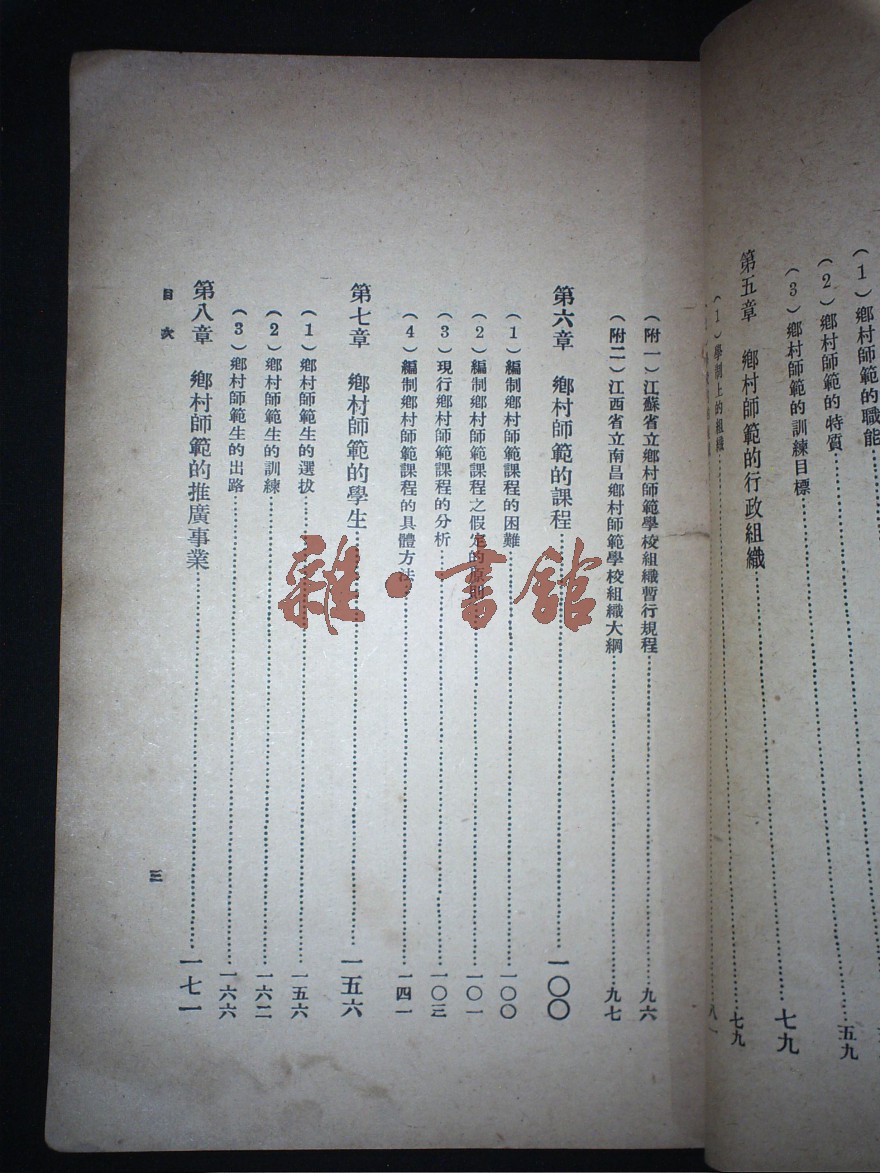 (1)鄉村師範的職能
(2)鄉村師範的特質
(3)鄉村師範的訓練目標…………五九
第五章 鄉村師範的行政組織…………七九
(1)學制上的組織…………七九
八一
(附一)江蘇省立鄉村師範學校組織暫行規程…………九六
(附二)江西省立南昌鄉村師範學校組織大綱…………九七
第六章 鄉村師範的課程…………一〇〇
(1)編制鄉村師範課程的困難…………一〇〇
(2)編制鄉村師範課程之假定的原則…………一〇一
(3)現行鄉村師範課程的分析…………一〇三
(4)編制鄉村師範課程的具體方法…………一四一
第七章 鄉村師範的學生…………一五六
(1)鄉村師範生的選拔…………一五六
(2)鄉村師範生的訓練…………一六二
(3)鄉村師範生的出路…………一六六
第八章 鄉村師範的推廣事業…………一七一
目次
三
雜·書館